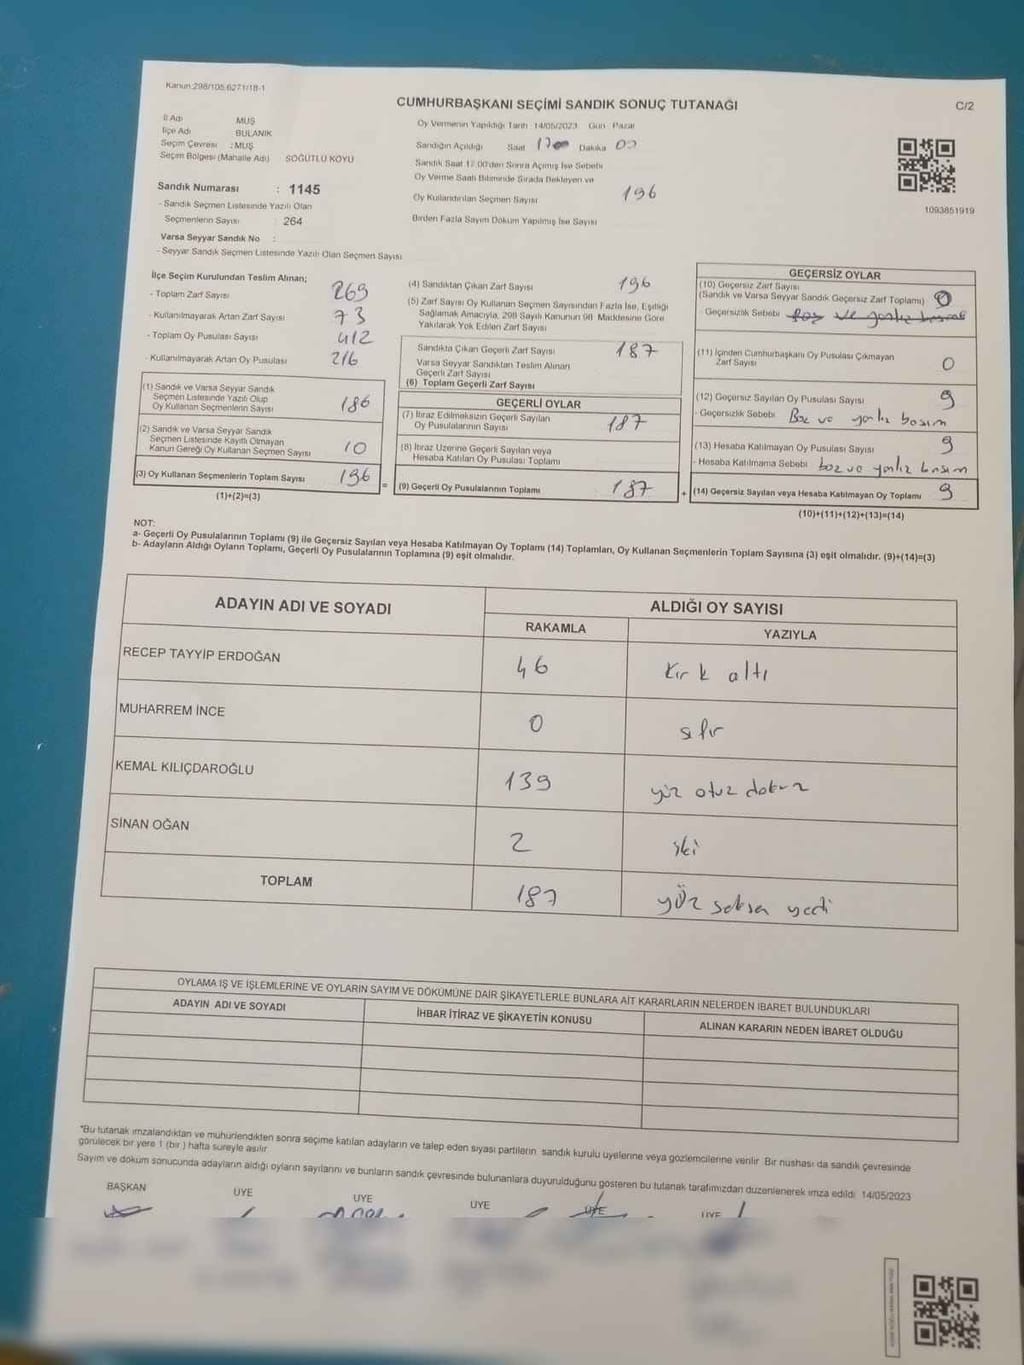 Kanun:298/105.6271/18-1
CUMHURBAŞKANI SEÇİMİ SANDIK SONUÇ TUTANAĞI
C/2
İl Adı MUŞ
İlçe Adı BULANIK
Seçim Çevresi : MUŞ
Seçim Bölgesi (Mahalle Adı) SÖĞÜTLÜ KÖYÜ
Sandık Numarası : 1145
- Sandık Seçmen Listesinde Yazılı Olan
Seçmenlerin Sayısı : 264
Varsa Seyyar Sandık No :
- Seyyar Sandık Seçmen Listesinde Yazılı Olan Seçmen Sayısı
Oy Vermenin Yapıldığı Tarih 14/05/2023 Gün Pazar
Sandığın Açıldığı Saat 1700 Dakika 00
Sandık Saat 17.00'den Sonra Açılmış İse Sebebi
Oy Verme Saati Bitiminde Sırada Bekleyen ve
Oy Kullandırılan Seçmen Sayısı 196
Birden Fazla Sayım Döküm Yapılmış İse Sayısı
1093851919
İlçe Seçim Kurulundan Teslim Alınan;
- Toplam Zarf Sayısı 269
- Kullanılmayarak Artan Zarf Sayısı 73
- Toplam Oy Pusulası Sayısı 412
- Kullanılmayarak Artan Oy Pusulası 216
(1) Sandık ve Varsa Seyyar Sandık
Seçmen Listesinde Yazılı Olup
Oy Kullanan Seçmenlerin Sayısı 186
(2) Sandık ve Varsa Seyyar Sandık
Seçmen Listesinde Kayıtlı Olmayan
Kanun Gereği Oy Kullanan Seçmen Sayısı 10
(3) Oy Kullanan Seçmenlerin Toplam Sayısı 196 =
(1)+(2)=(3)
(4) Sandıktan Çıkan Zarf Sayısı 196
(5) Zarf Sayısı Oy Kullanan Seçmen Sayısından Fazla İse, Eşitliği
Sağlamak Amacıyla, 298 Sayılı Kanunun 98 Maddesine Göre
Yakılarak Yok Edilen Zarf Sayısı
Sandıkta Çıkan Geçerli Zarf Sayısı 187
Varsa Seyyar Sandıktan Teslim Alınan
Geçerli Zarf Sayısı
(6) Toplam Geçerli Zarf Sayısı
GEÇERLİ OYLAR
(7) İtiraz Edilmeksizin Geçerli Sayılan
Oy Pusulalarının Sayısı 187
(8) İtiraz Üzerine Geçerli Sayılan veya
Hesaba Katılan Oy Pusulası Toplamı
(9) Geçerli Oy Pusulalarının Toplamı 187 +
GEÇERSİZ OYLAR
(10) Geçersiz Zarf Sayısı
(Sandık ve Varsa Seyyar Sandık Geçersiz Zarf Toplamı) 0
- Geçersizlik Sebebi boş ve yanlız basım
(11) İçinden Cumhurbaşkanı Oy Pusulası Çıkmayan
Zarf Sayısı 0
(12) Geçersiz Sayılan Oy Pusulası Sayısı 9
- Geçersizlik Sebebi Boz ve yanlız basım
(13) Hesaba Katılmayan Oy Pusulası Sayısı 9
- Hesaba Katılmama Sebebi boz ve yanlız basım
(14) Geçersiz Sayılan veya Hesaba Katılmayan Oy Toplamı 9
(10)+(11)+(12)+(13)=(14)
NOT:
a- Geçerli Oy Pusulalarının Toplamı (9) ile Geçersiz Sayılan veya Hesaba Katılmayan Oy Toplamı (14) Toplamları, Oy Kullanan Seçmenlerin Toplam Sayısına (3) eşit olmalıdır. (9)+(14)=(3)
b- Adayların Aldığı Oyların Toplamı, Geçerli Oy Pusulalarının Toplamına (9) eşit olmalıdır.
ADAYIN ADI VE SOYADI ALDIĞI OY SAYISI
RAKAMLA YAZIYLA
RECEP TAYYİP ERDOĞAN 46 Kırk altı
MUHARREM İNCE 0 sıfır
KEMAL KILIÇDAROĞLU 139 yüz otuz dokuz
SİNAN OĞAN 2 iki
TOPLAM 187 yüz seksen yedi
OYLAMA İŞ VE İŞLEMLERİNE VE OYLARIN SAYIM VE DÖKÜMÜNE DAİR ŞİKAYETLERLE BUNLARA AİT KARARLARIN NELERDEN İBARET BULUNDUKLARI
ADAYIN ADI VE SOYADI İHBAR İTİRAZ VE ŞİKAYETİN KONUSU ALINAN KARARIN NEDEN İBARET OLDUĞU
"Bu tutanak imzalandıktan ve mühürlendikten sonra seçime katılan adayların ve talep eden siyasi partilerin sandık kurulu üyelerine veya gözlemcilerine verilir Bir nüshası da sandık çevresinde
görülecek bir yere 1 (bir) hafta süreyle asılır
Sayım ve döküm sonucunda adayların aldığı oyların sayılarını ve bunların sandık çevresinde bulunanlara duyurulduğunu gösteren bu tutanak tarafımızdan düzenlenerek imza edildi 14/05/2023
BAŞKAN ÜYE ÜYE ÜYE ÜYE ÜYE